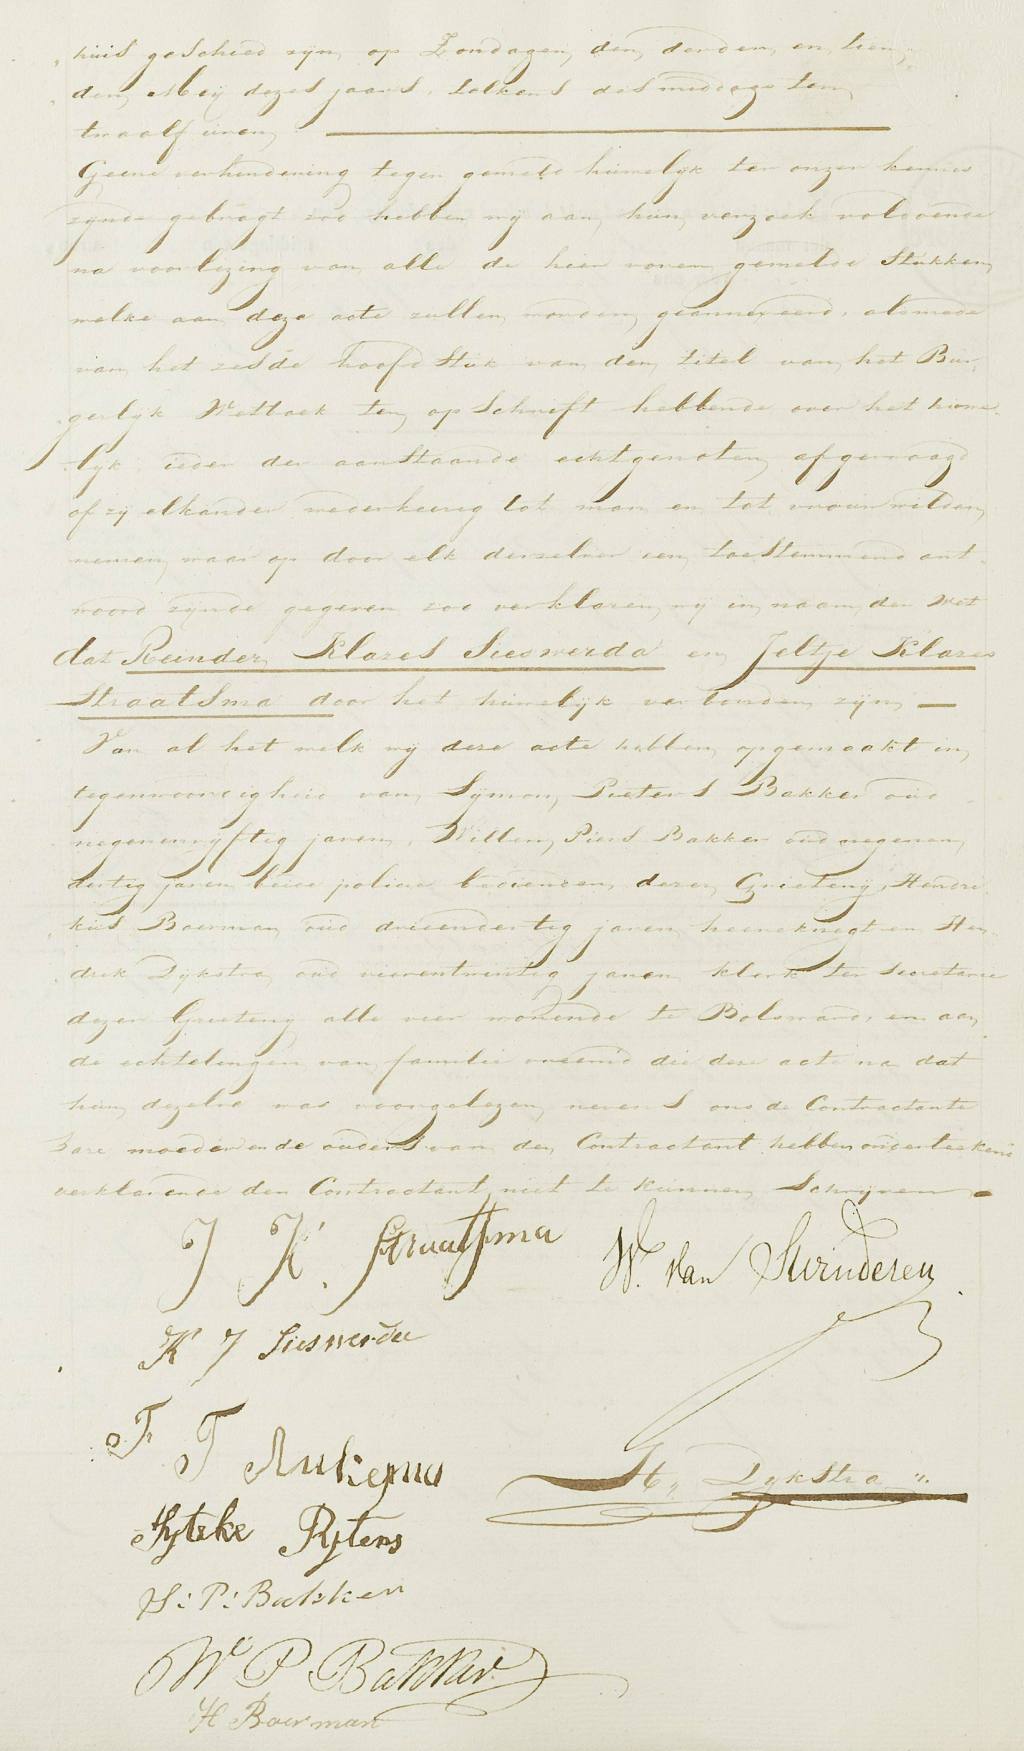 huis geschied zijn, op Zondagen, den derden, en tien,
den, Meij dezes jaars, telkens des middags ten,
twaalf uren,
Geene verhindering tegen gemeld huwelijk ter onzer kennis
zijnde gebragt zoo hebben wij aan, hun, verzoek voldoende
na voorlezing van, alle de hier voren gemelde Stukken,
welke aan deze acte zullen, worden, geannexeerd, alsmede
van het zesde hoofdstuk van den, titel van, het Bur,
gerlijk Wetboek ten, opschrift hebbende over het huwe,
lijk ieder der aanstaande echtgenoten, afgevraagd
of zij elkander wederkeerig tot man en tot vrouw wilden,
nemen, waar op door elk derzelver een, toestemmend ant,
woord zijnde gegeven zoo verklaren, wij in, naam, der Wet
dat Reinder, Klazes Sieswerda en, Jeltje Klazes
Straatsma door het huwelijk verbonden zijn,
Van al het welk wij deze acte hebben, opgemaakt in,
tegenwoordigheid van, Symon, Pieters Bakker oud
negenenvijftig jaren, Willem, Piers Bakker oud negenen,
dertig jaren beide policie bedienden, dezer, Grieteny, Hendri,
kus Boerman, oud drieendertig jaren, heereknegt en Hen,
drik Dijkstra, oud vierentwintig jaren klerk ter Secretarie
dezer Grieteny alle vier wonende te Bolsward, en aan,
de echtelingen van, familie vreemd die deze acte na dat
hun, dezelve was voorgelezen, nevens ons de Contractante
Hare moeder en de ouders van den, Contractant hebben onderteekend
verklarende den Contractant niet te kunnen, Schrijven
J K. Straatsma
W. van Swinderen
K J Sieswerda
F T Aukema
H, Dykstra
Hytske Rytens
S: P: Bakker
Wm P Bakker
H Boerman